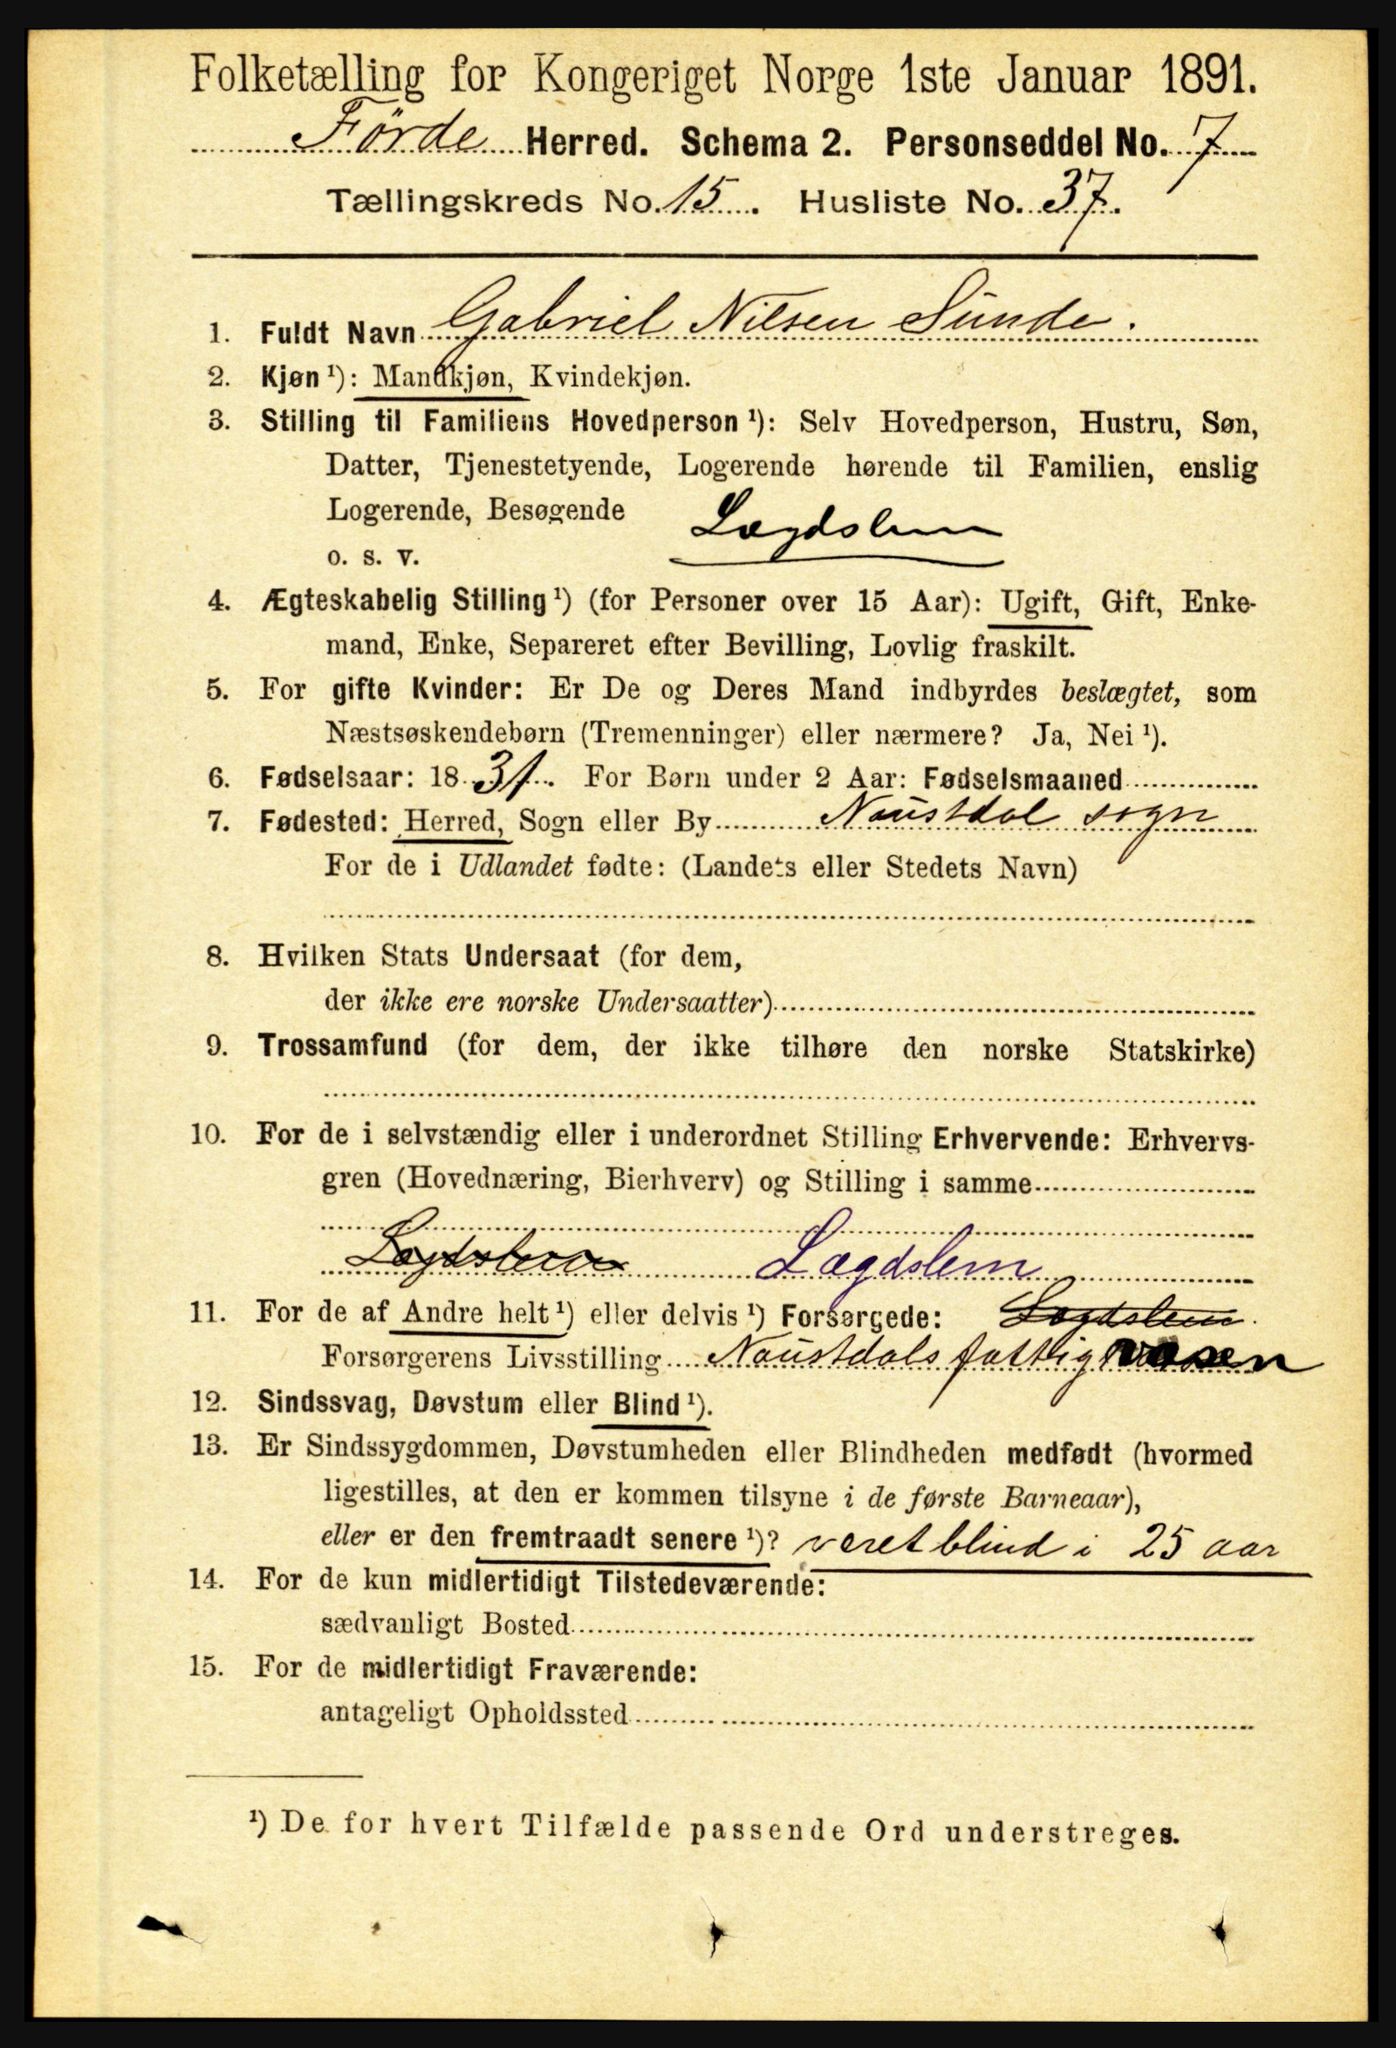 Folketælling for Kongeriget Norge 1ste Januar 1891.
Förde Herred. Schema 2. Personseddel No. 7
Tællingskreds No. 15. Husliste No. 37.
1. Fuldt Navn Gabriel Nilsen Sunde.
2. Kjøn ¹): Mandkjøn, Kvindekjøn.
3. Stilling til Familiens Hovedperson ¹): Selv Hovedperson, Hustru, Søn,
Datter, Tjenestetyende, Logerende hørende til Familien, enslig
Logerende, Besøgende Lægdslem
o. s. v.
4. Ægteskabelig Stilling ¹) (for Personer over 15 Aar): Ugift, Gift, Enke-
mand, Enke, Separeret efter Bevilling, Lovlig fraskilt.
5. For gifte Kvinder: Er De og Deres Mand indbyrdes beslægtet, som
Næstsøskendebørn (Tremenninger) eller nærmere? Ja, Nei ¹).
6. Fødselsaar: 1831. For Børn under 2 Aar: Fødselsmaaned
7. Fødested: Herred, Sogn eller By Naustdal sogn
For de i Udlandet fødte: (Landets eller Stedets Navn)
8. Hvilken Stats Undersaat (for dem,
der ikke ere norske Undersaatter)
9. Trossamfund (for dem, der ikke tilhøre den norske Statskirke)
10. For de i selvstændig eller i underordnet Stilling Erhvervende: Erhvervs-
gren (Hovednæring, Bierhverv) og Stilling i samme
Lægdslem Lægdslem
11. For de af Andre helt ¹) eller delvis ¹) Forsørgede: Lægdslem
Forsørgerens Livsstilling Naustdals fattigvæsen
12. Sindssvag, Døvstum eller Blind ¹).
13. Er Sindssygdommen, Døvstumheden eller Blindheden medfødt (hvormed
ligestilles, at den er kommen tilsyne i de første Barneaar),
eller er den fremtraadt senere ¹)? været blind i 25 aar
14. For de kun midlertidigt Tilstedeværende:
sædvanligt Bosted
15. For de midlertidigt Fraværende:
antageligt Opholdssted
¹) De for hvert Tilfælde passende Ord understreges.